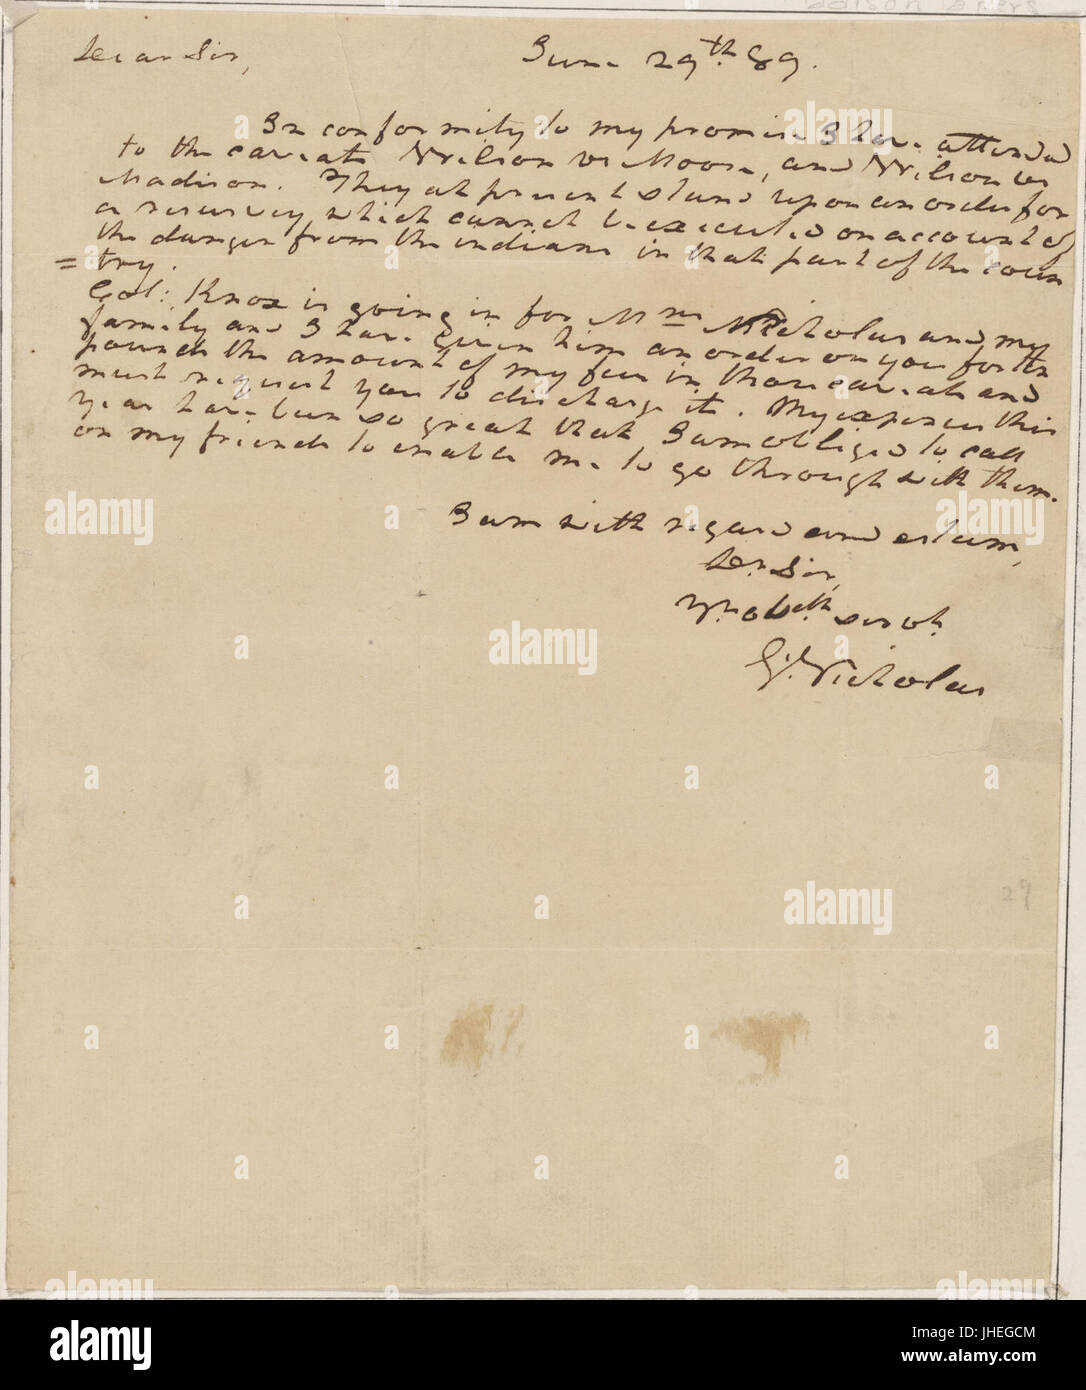 Dear Sir, June 29th 89.
In conformity to my promise I have attended
to the caveats Wilson vs Moore, and Wilson vs
Madison. They at present stand upon an order for
a resurvey, which cannot be executed on account of
the danger from the indians in that part of the coun
= try.
Col: Knox is going in for Mrs Nicholas and my
family and I have given him an order on you for ten
pounds the amount of my fees in those caveats and
must request you to discharge it. My expences this
year have been so great that I am obliged to call
on my friends to enable me to go through with them.
I am with regard and esteem,
Dr Sir,
Yr obdt servt
G: Nicholas
29
alamy
a
Image ID: JHEGCM
www.alamy.com